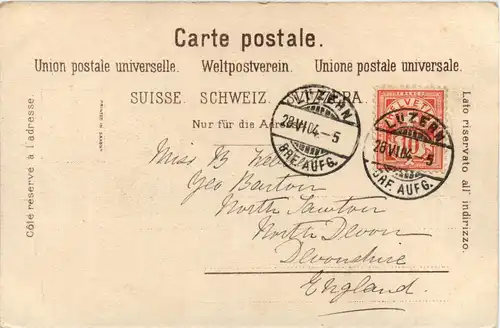 Carte postale.
Union postale universelle. Weltpostverein. Unione postale universale.
SUISSE. SCHWEIZ.
Nur für die
Côté réservé à l'adresse.
Lato riservato all' indirizzo.
HELVETIA
10
LUZERN
28.VI.04.-5
BRF. AUFG.
LUZERN
28.VI.04.-5
BRF. AUFG.
Miss B
Geo Barton
North
North Devon
Devonshire
England.